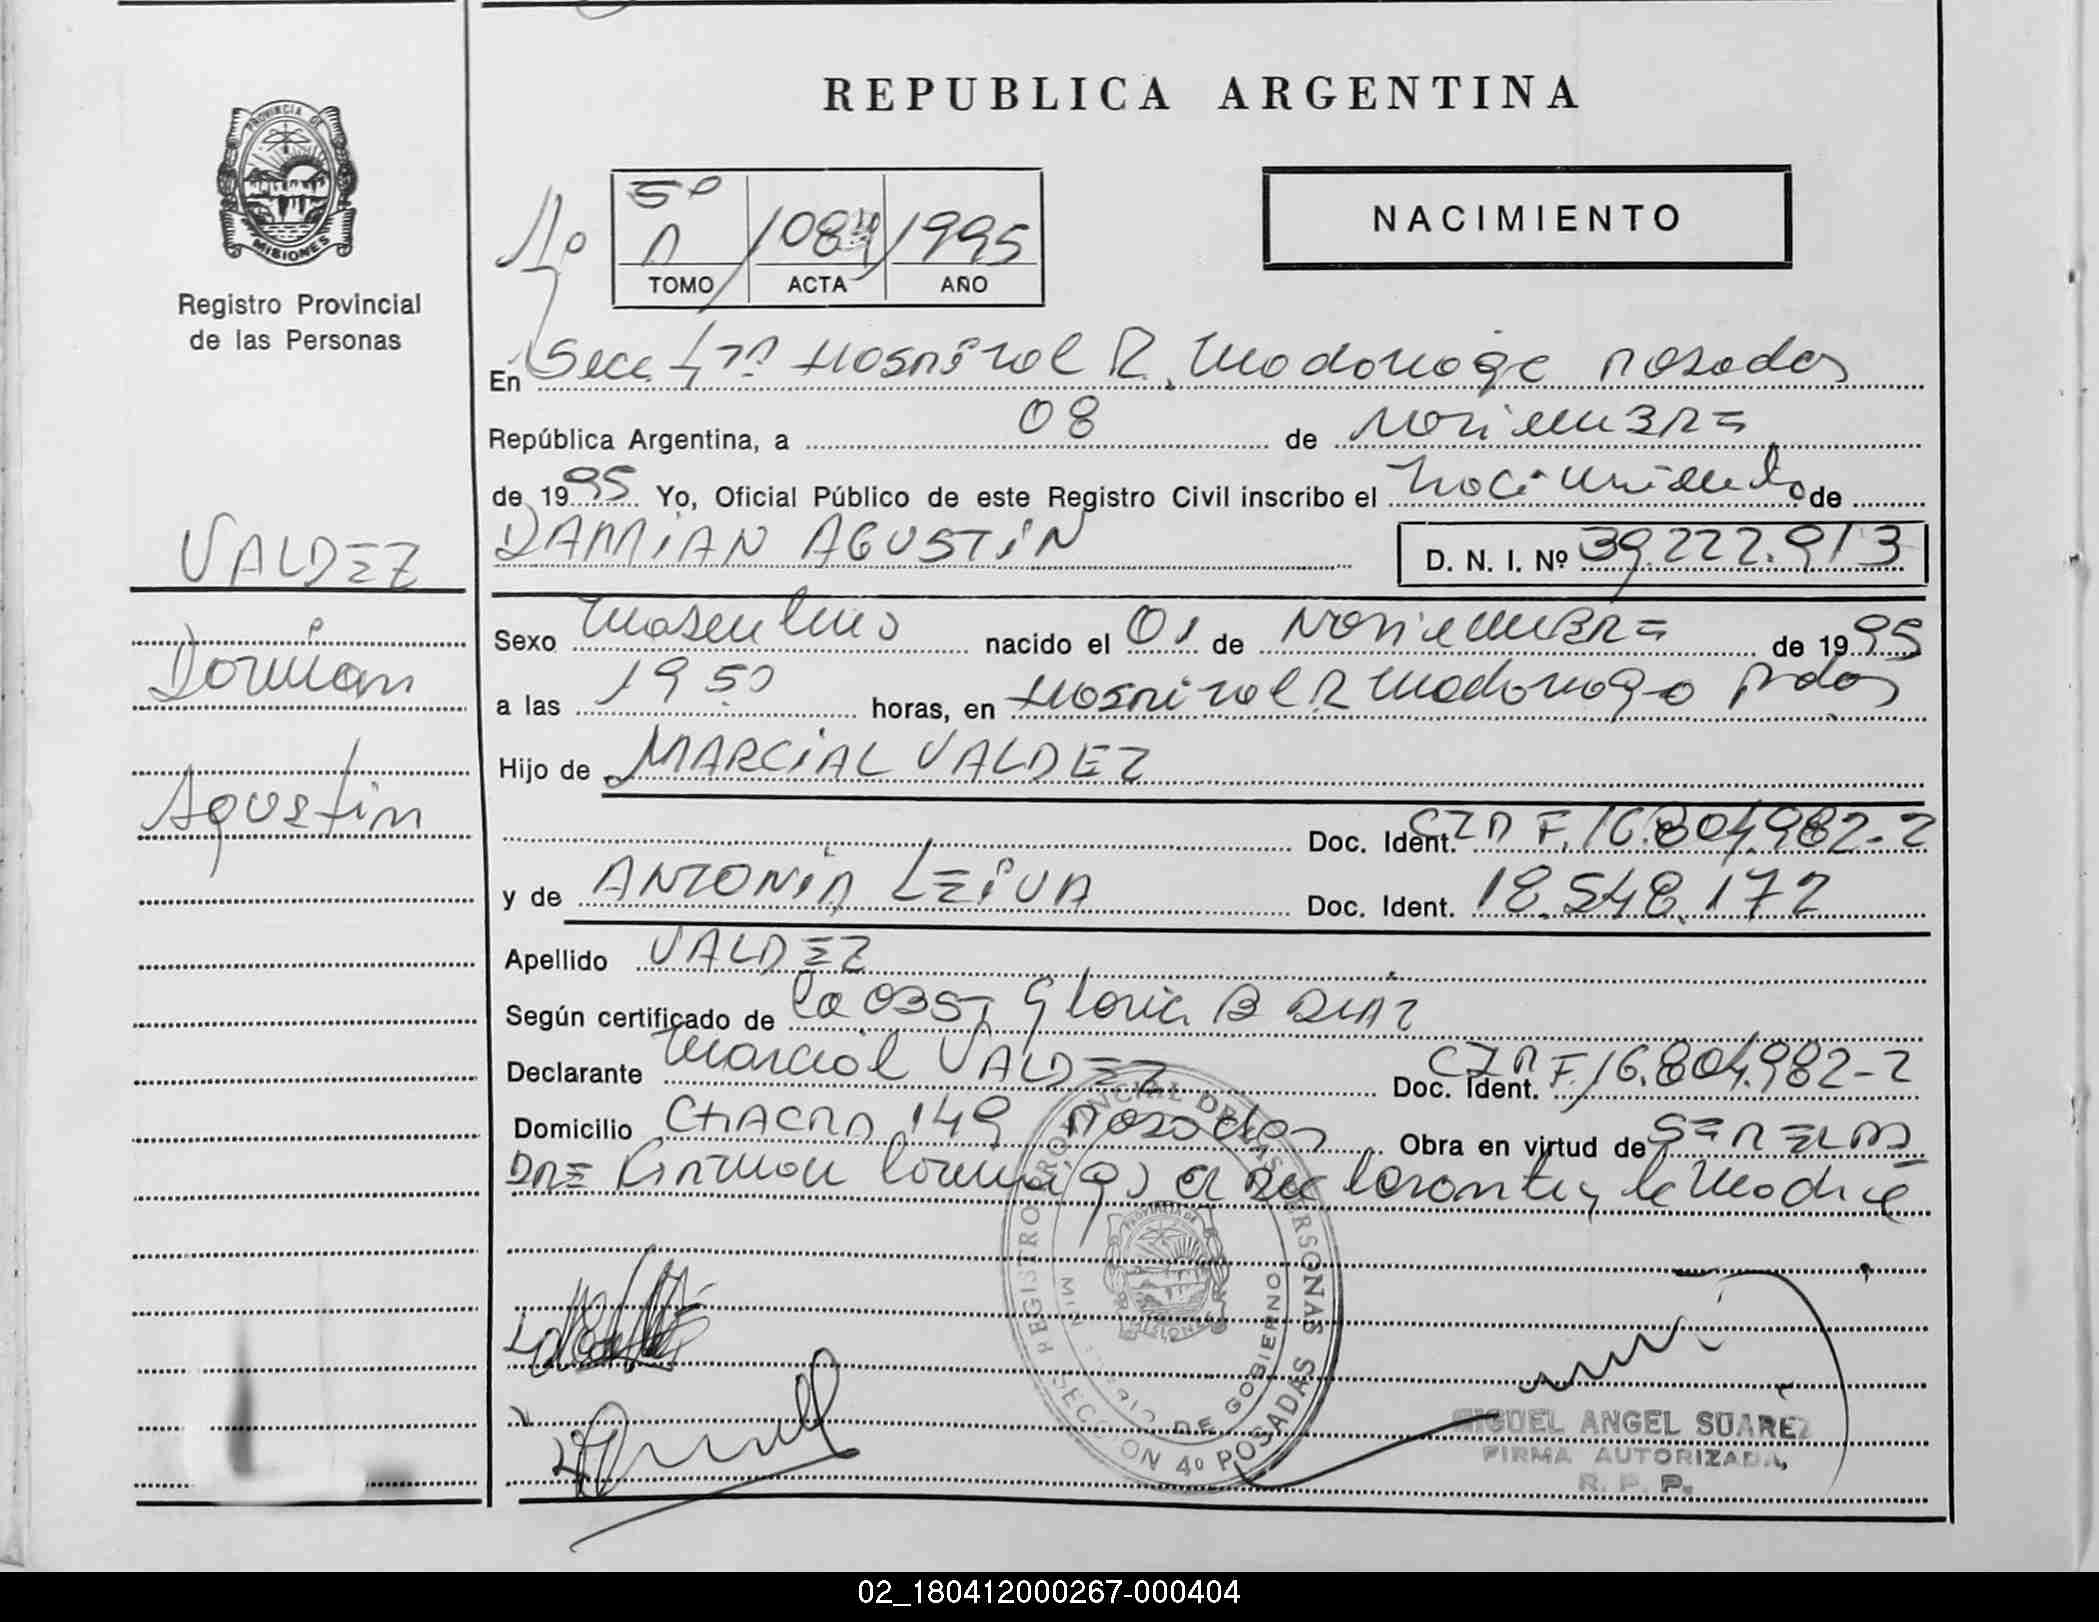 REPUBLICA ARGENTINA
PROVINCIA DE
MISIONES
Registro Provincial
de las Personas
NACIMIENTO
5º
1995
TOMO ACTA AÑO
En Secc 4ta Hospital R. Madariaga Posadas
República Argentina, a 08 de Noviembre
de 1995 Yo, Oficial Público de este Registro Civil inscribo el nacimiento de
VALDEZ
DAMIAN AGUSTIN D. N. I. Nº 39.222.913
Damián
Agustin
Sexo Masculino nacido el 01 de Noviembre de 1995
a las 19 50 horas, en Hospital R Madariaga Pdas
Hijo de MARCIAL VALDEZ
Doc. Ident. CIP F. 16.804.982-2
y de ANTONIA LEIVA Doc. Ident. 18.548.172
Apellido VALDEZ
Según certificado de la OBST Gloria B DIAZ
Declarante Marcial VALDEZ Doc. Ident. CIP F. 16.804.982-2
Domicilio CHACRA 149 Posadas Obra en virtud de SER EL PA
DRE firman el declarante y la Madre
REGISTRO PROVINCIAL DE LAS PERSONAS
DE GOBIERNO
SECCION 4º POSADAS
PROVINCIA DE
MISIONES
MIGUEL ANGEL SUAREZ
FIRMA AUTORIZADA
R. P. P.
02_180412000267-000404